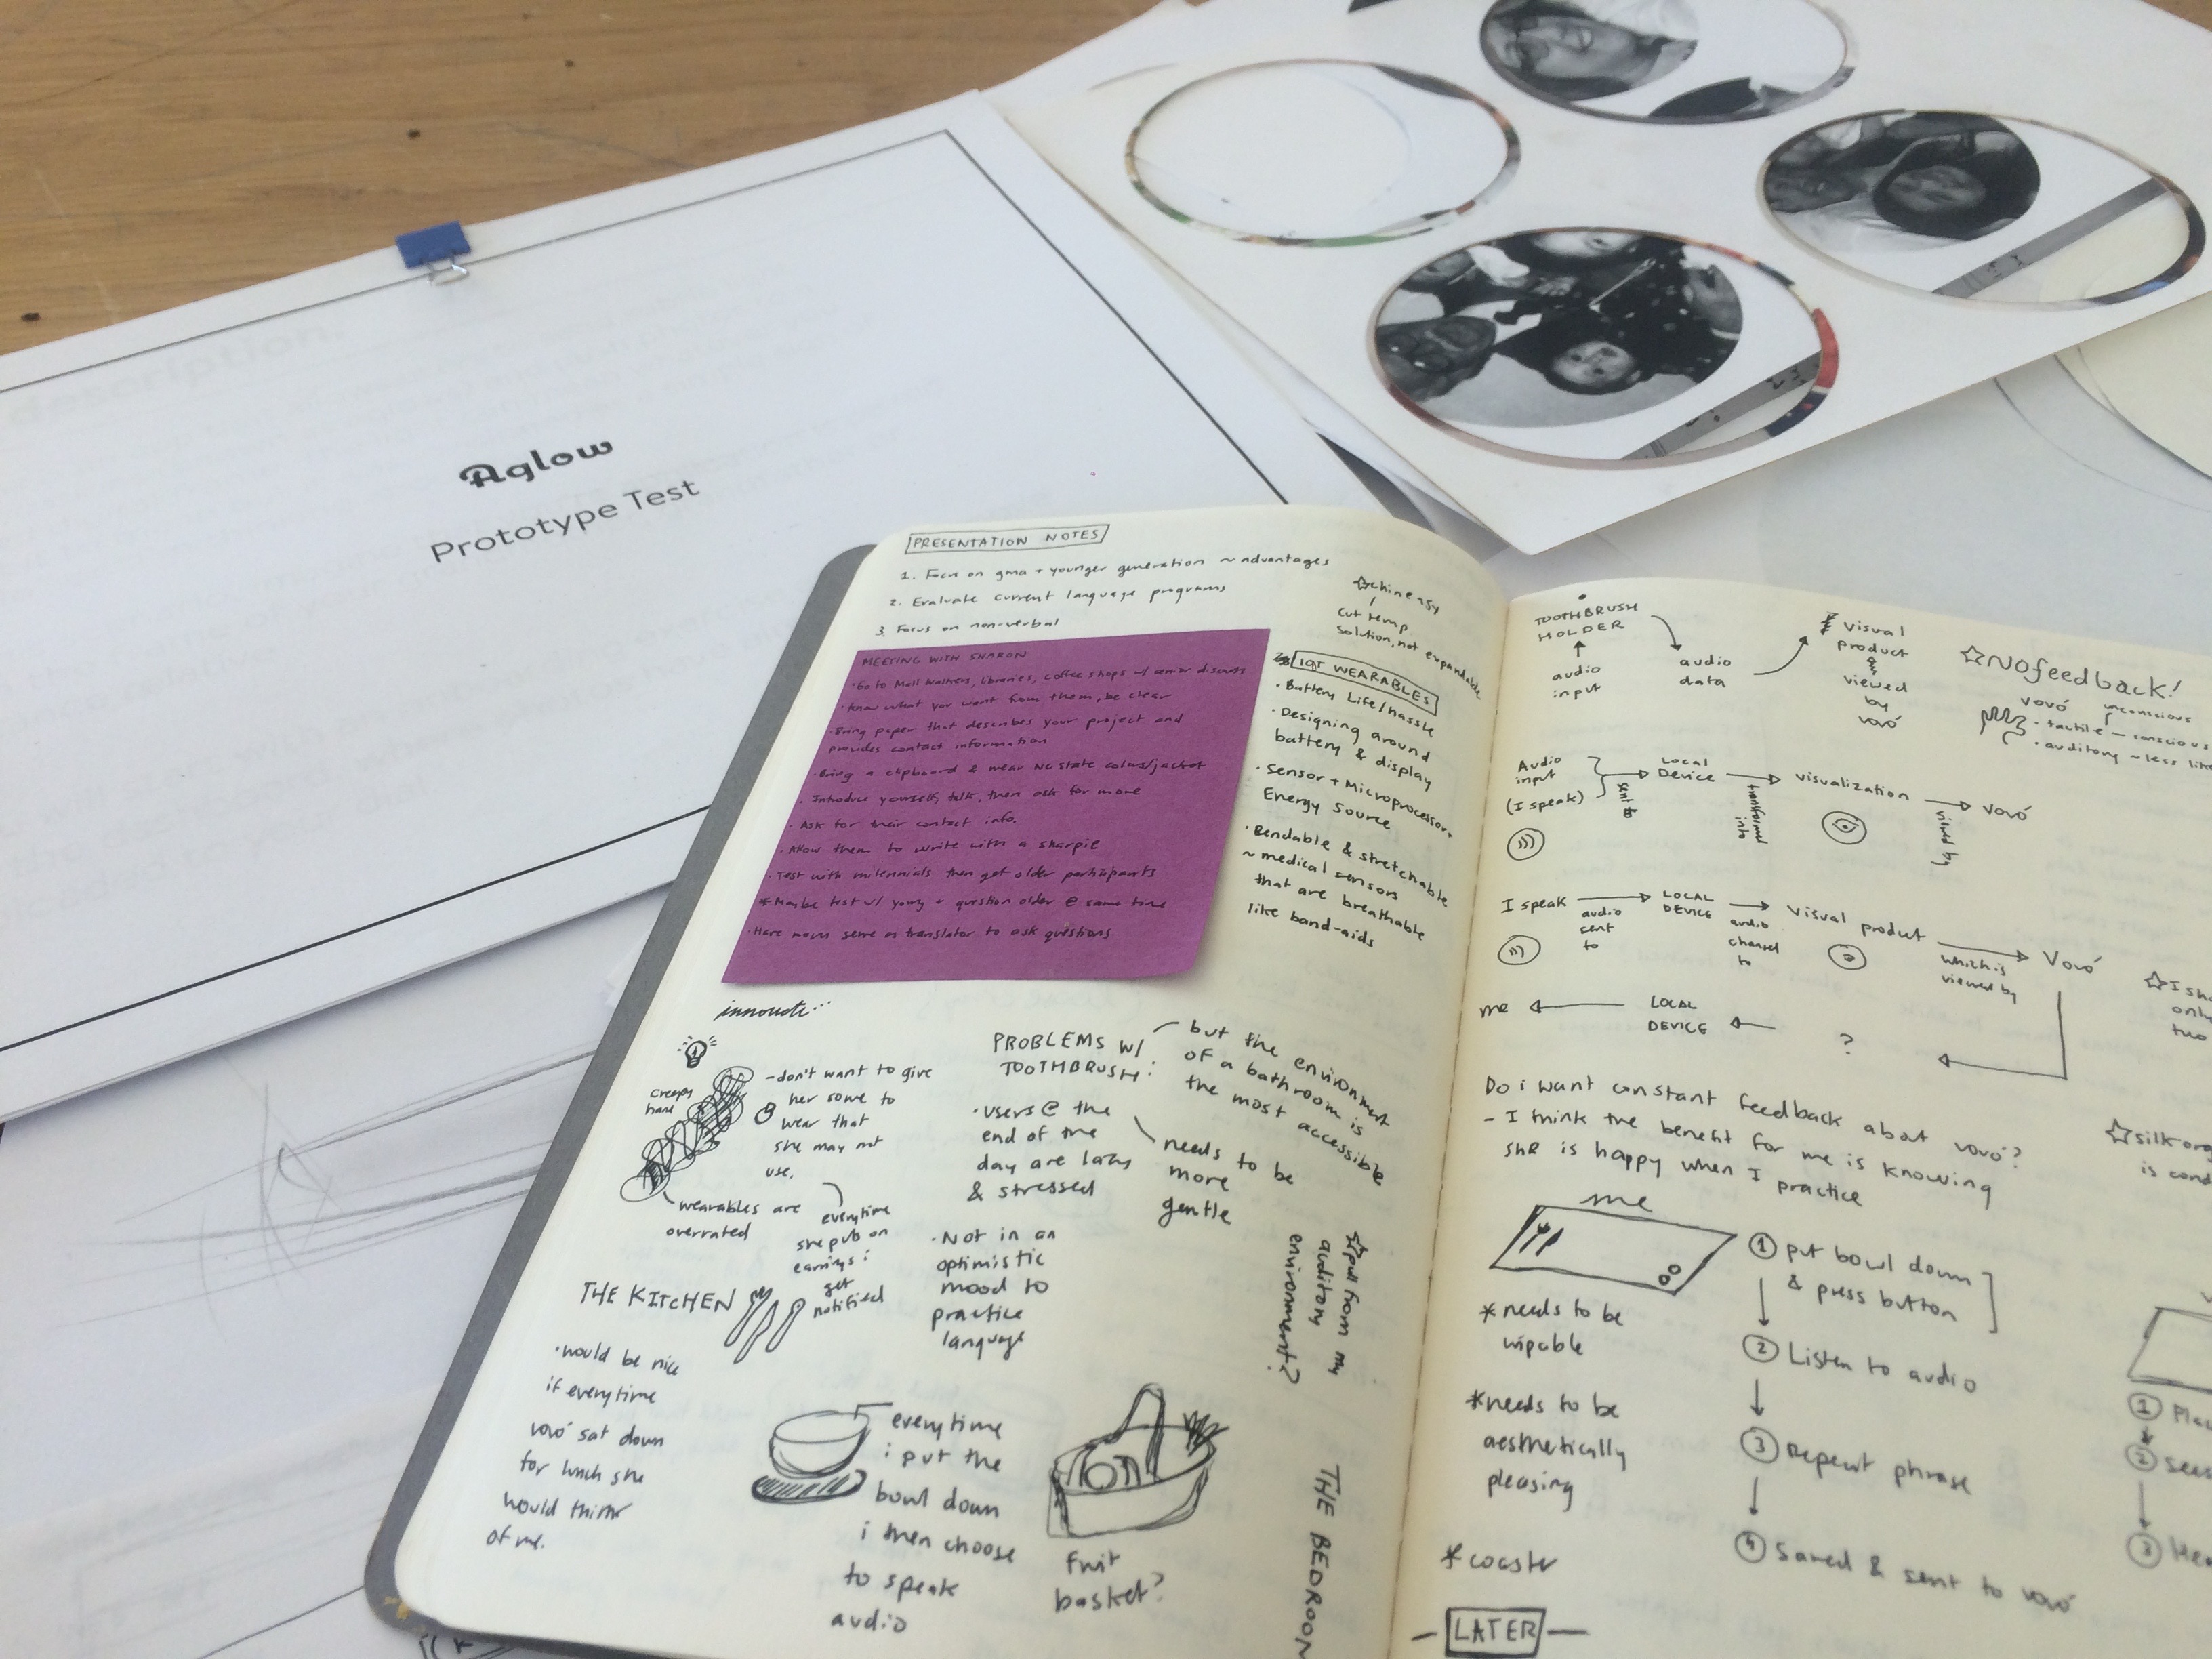 Aglow
Prototype Test
PRESENTATION NOTES
1. Focus on gma + younger generation ~ advantages
2. Evaluate current language programs
3. Focus on non-verbal
☆chineasy
cut temp
solution, not expandable
MEETING WITH SHARON
·Go to Mall Walkers, libraries, coffee shops w/ senior discounts
·Know what you want from them, be clear
·Bring paper that describes your project and
provides contact information
·Bring a clipboard & wear NC State colors/jacket
·Introduce yourself, talk, then ask for more
·Ask for their contact info.
·Allow them to write with a sharpie
·Test with millennials then get older participants
*Maybe test w/ young + question older @ same time
·Have mom serve as translator to ask questions
IOT WEARABLES
·Battery Life/hassle
·Designing around
battery & display
·Sensor + Microprocessor +
Energy Source
·Bendable & stretchable
~ medical sensors
that are breathable
like band-aids
innovate...
creepy
hand
-don't want to give
her some to
wear that
she may not
use.
wearables are
overrated
everytime
she puts on
earrings:
get
notified
PROBLEMS W/
TOOTHBRUSH:
but the environment
of a bathroom is
the most accessible
·users @ the
end of the
day are lazy
& stressed
needs to be
more
gentle
·Not in an
optimistic
mood to
practice
language
☆pull from my
auditory
environment?
THE KITCHEN
·would be nice
if everytime
vovó sat down
for lunch she
would think
of me.
everytime
i put the
bowl down
i then choose
to speak
audio
fruit
basket?
THE BEDROOM
TOOTHBRUSH
HOLDER
audio
input
audio
data
visual
product
viewed
by
vovó
☆No feedback!
vovó
unconscious
·tactile — conscious
·auditory ~ less
Audio
input
(I speak)
sent to
Local
Device
transformed
into
visualization
viewed by
vovó
I speak
audio
sent
to
LOCAL
DEVICE
audio
channel
to
visual product
which is
viewed by
Vovó
me
LOCAL
DEVICE
?
☆I
two
Do i want constant feedback about vovó?
- I think the benefit for me is knowing
she is happy when I practice
☆silk
is
me
*needs to be
wipable
*needs to be
aesthetically
pleasing
*coaster
① put bowl down
& press button
② Listen to audio
③ Repeat phrase
④ saved & sent to vovó
①
②
③
LATER